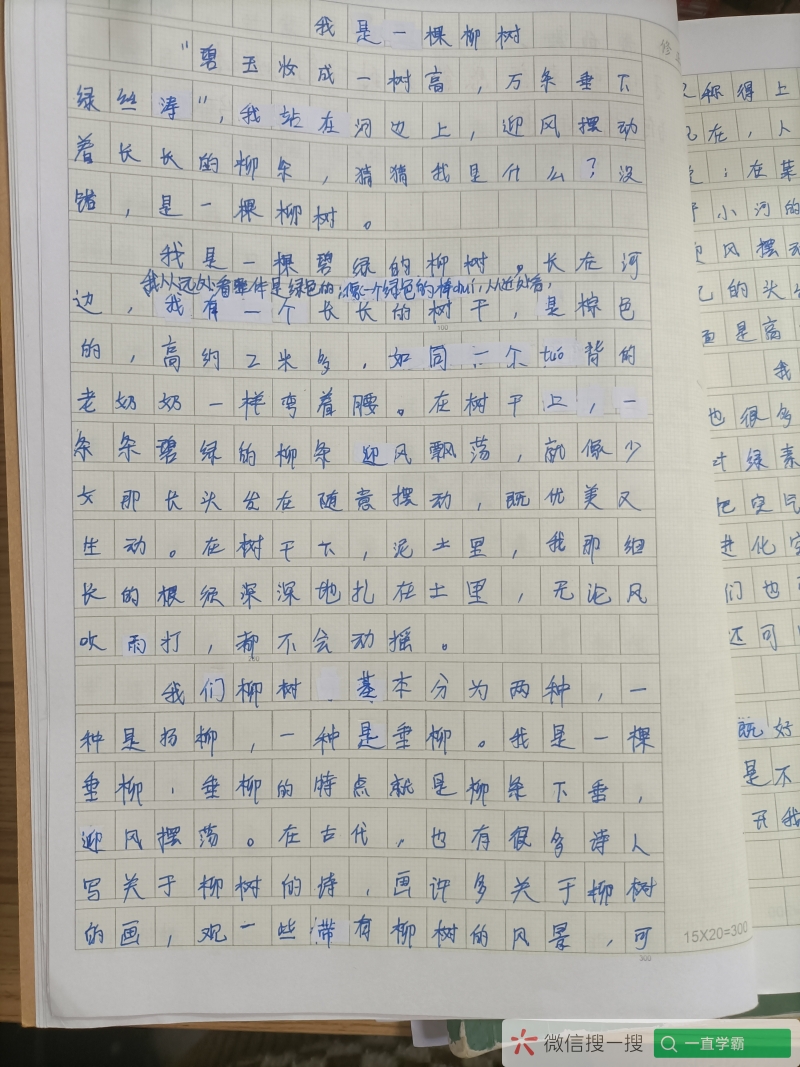 我是一棵柳树
"碧玉妆成一树高，万条垂下
绿丝涛"，我站在河边上，迎风摆动
着长长的柳条，猜猜我是什么？没
错，是一棵柳树。
我是一棵碧绿的柳树。长在河
我从远处看整体是绿色的，像一个绿色的棒，从近处看，
边，我有一个长长的树干，是棕色
的，高约2米多，如同一个tuó背的
老奶奶一样弯着腰。在树干上，一
条条碧绿的柳条迎风飘荡，就像少
女那长头发在随意摆动，既优美又
生动。在树干下，泥土里，我那细
长的根须深深地扎在土里，无论风
吹雨打，都不会动摇。
我们柳树基本分为两种，一
种是扬柳，一种是垂柳。我是一棵
垂柳，垂柳的特点就是柳条下垂，
迎风摆荡。在古代，也有很多诗人
写关于柳树的诗，画许多关于柳树
的画，观一些带有柳树的风景，可
100
200
300
15X20=300
称得上
在，人
；在菜
小河的
风摆动
的头
是高
我
也很多
叶绿素
空气
进化空
们也
还可
既好
是不
开我
微信搜一搜
一直学霸